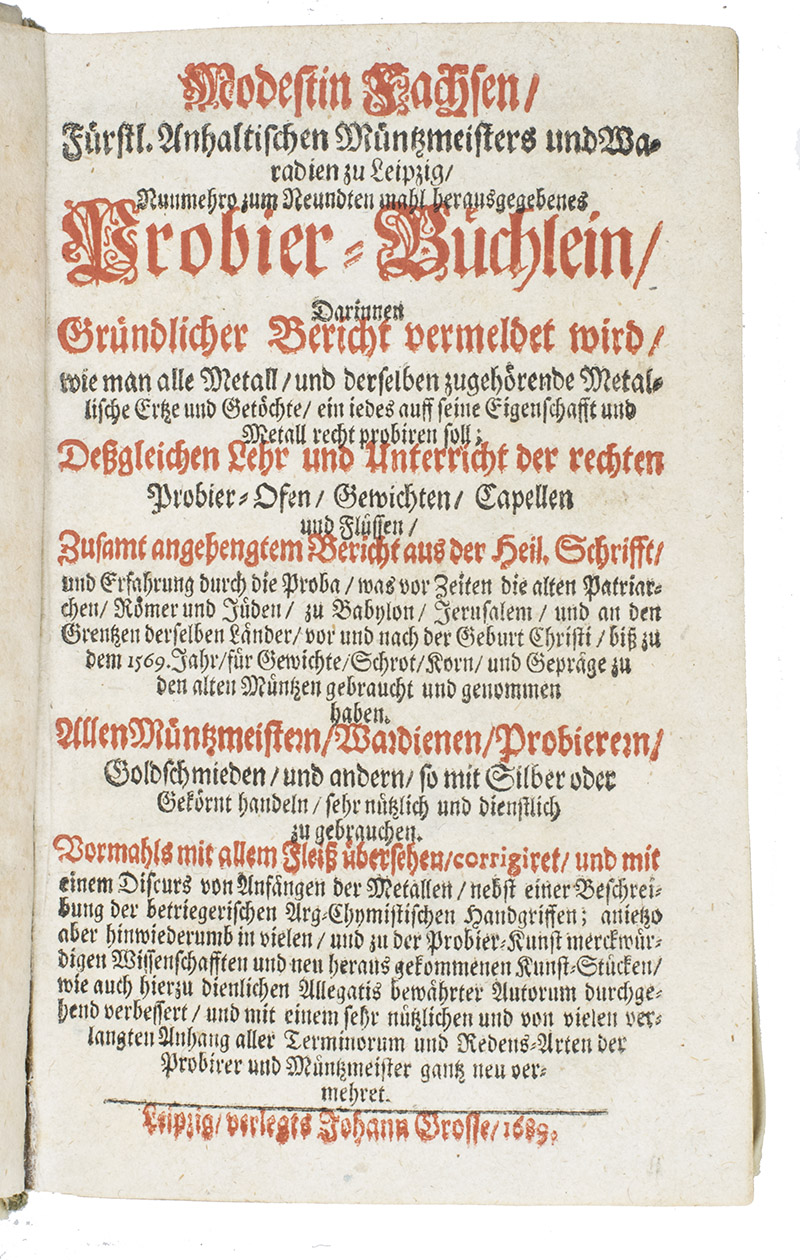 Modestin Fachsen/
Fürstl. Anhaltischen Müntzmeisters und Wa-
radien zu Leipzig/
Nunmehro zum Neundten mahl herausgegebenes
Probier-Büchlein/
Darinnen
Gründlicher Bericht vermeldet wird/
wie man alle Metall/ und derselben zugehörende Metal-
lische Ertze und Getöchte/ ein iedes auff seine Eigenschafft und
Metall recht probiren soll;
Deßgleichen Lehr und Unterricht der rechten
Probier-Ofen/ Gewichten/ Capellen
und Flüssen/
Zusamt angehengtem Bericht aus der Heil. Schrifft/
und Erfahrung durch die Proba/ was vor Zeiten die alten Patriar-
chen/ Römer und Jüden/ zu Babylon/ Jerusalem/ und an den
Grentzen derselben Länder/ vor und nach der Geburt Christi/ biß zu
dem 1569. Jahr/ für Gewichte/ Schrot/ Korn/ und Gepräge zu
den alten Müntzen gebraucht und genommen
haben.
Allen Müntzmeistern/ Wardienen/ Probierern/
Goldschmieden/ und andern/ so mit Silber oder
Gekörnt handeln/ sehr nützlich und dienstlich
zu gebrauchen.
Vormahls mit allem Fleiß übersehen/ corrigiret/ und mit
einem Discurs von Anfängen der Metallen/ nebst einer Beschrei-
bung der betriegerischen Arg-Chymistischen Handgriffen; anietzo
aber hinwiederumb in vielen/ und zu der Probier-Kunst merckwür-
digen Wissenschafften und neu heraus gekommenen Kunst-Stücken/
wie auch hierzu dienlichen Allegatis bewährter Autorum durchge-
hend verbessert/ und mit einem sehr nützlichen und von vielen ver-
langten Anhang aller Terminorum und Redens-Arten der
Probirer und Müntzmeister gantz neu ver-
mehret.
Leipzig/ verlegts Johann Grosse/ 1689.